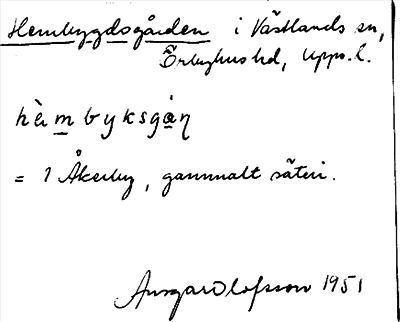 Hembygdsgården i Västlands sn,
Örbyhus hd, Upps. l.
hèm byksgàṇ
= 1 Åkerby, gammalt säteri.
Ansgar Olofsson 1951